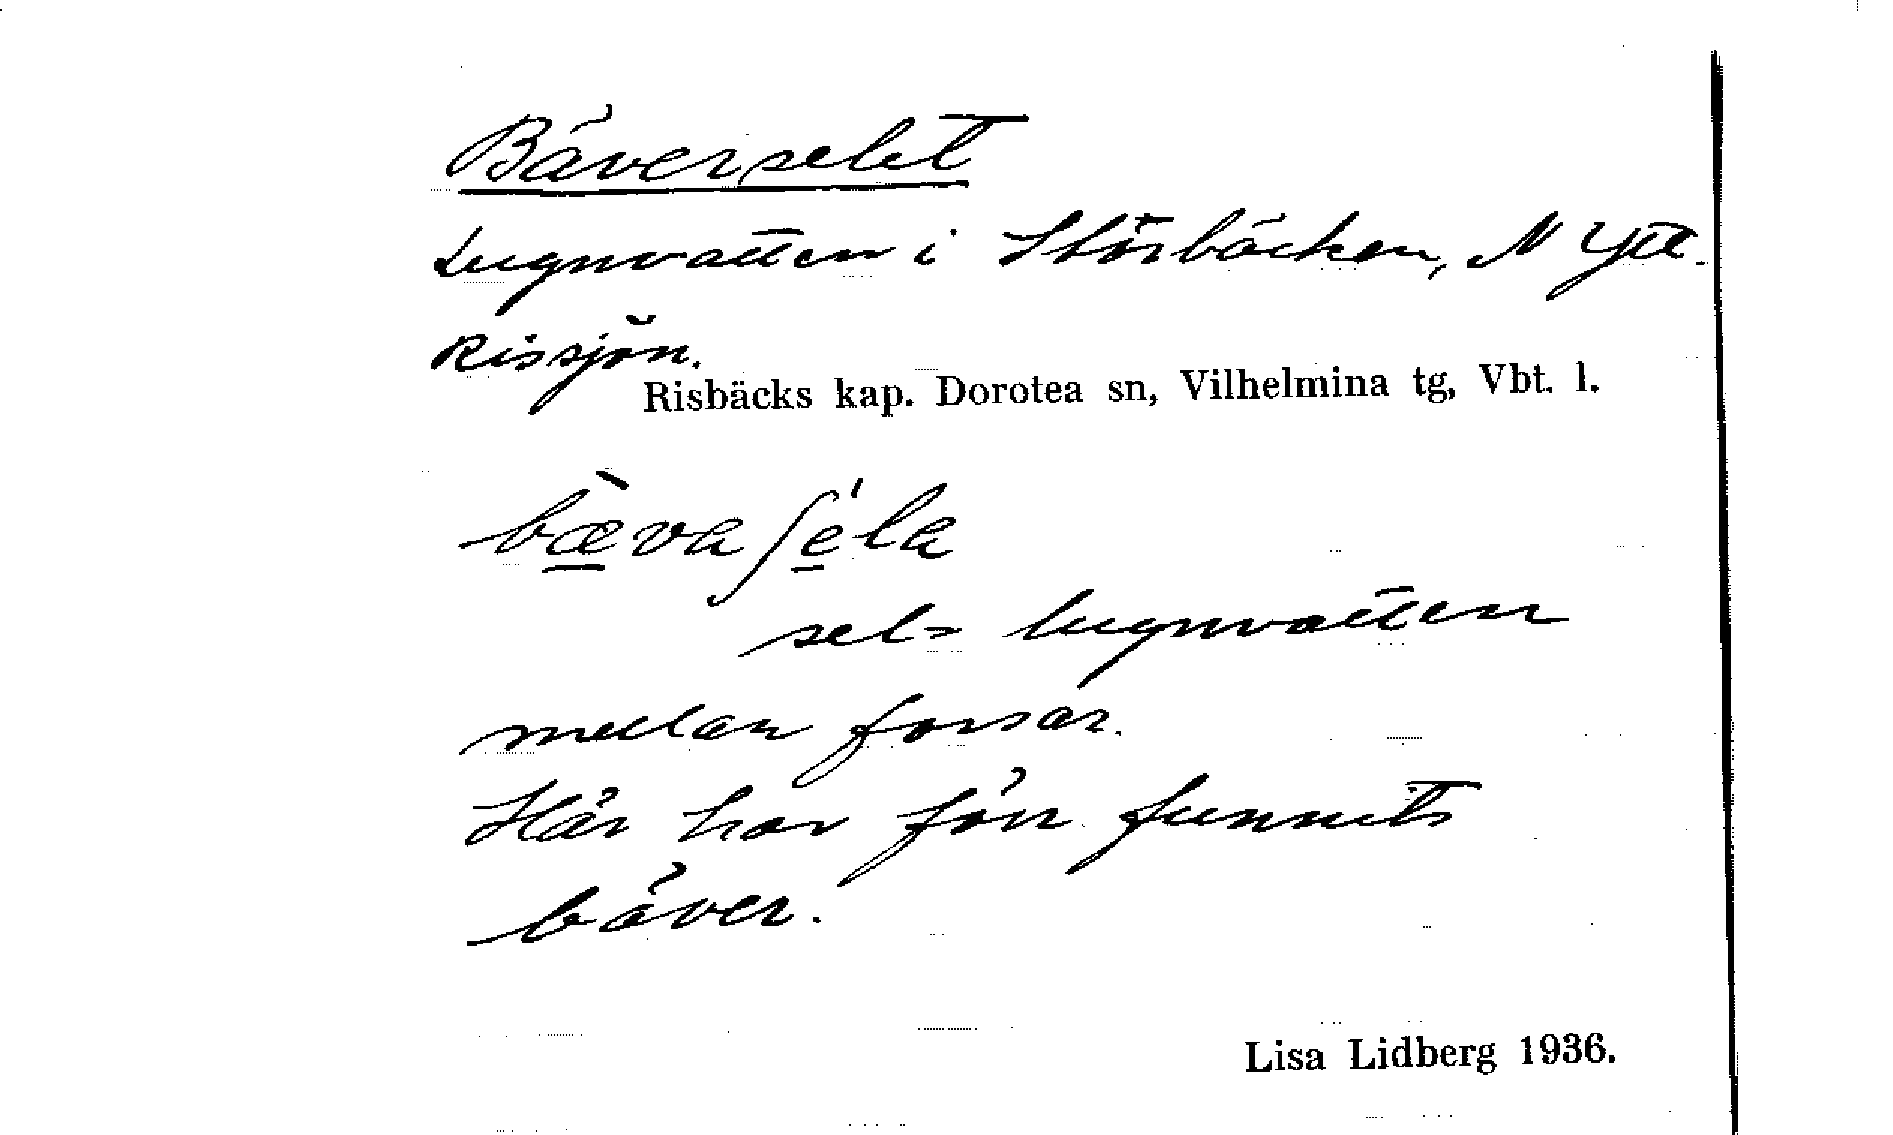 Bäverselet
Lugnvatten i Storbäcken, N Ytt.
Rissjön.
Risbäcks kap. Dorotea sn, Vilhelmina tg, Vbt. l.
bæ̀va ſéla
sel = lugnvatten
mellan forsar.
Här har förr funnits
bäver.
Lisa Lidberg 1936.